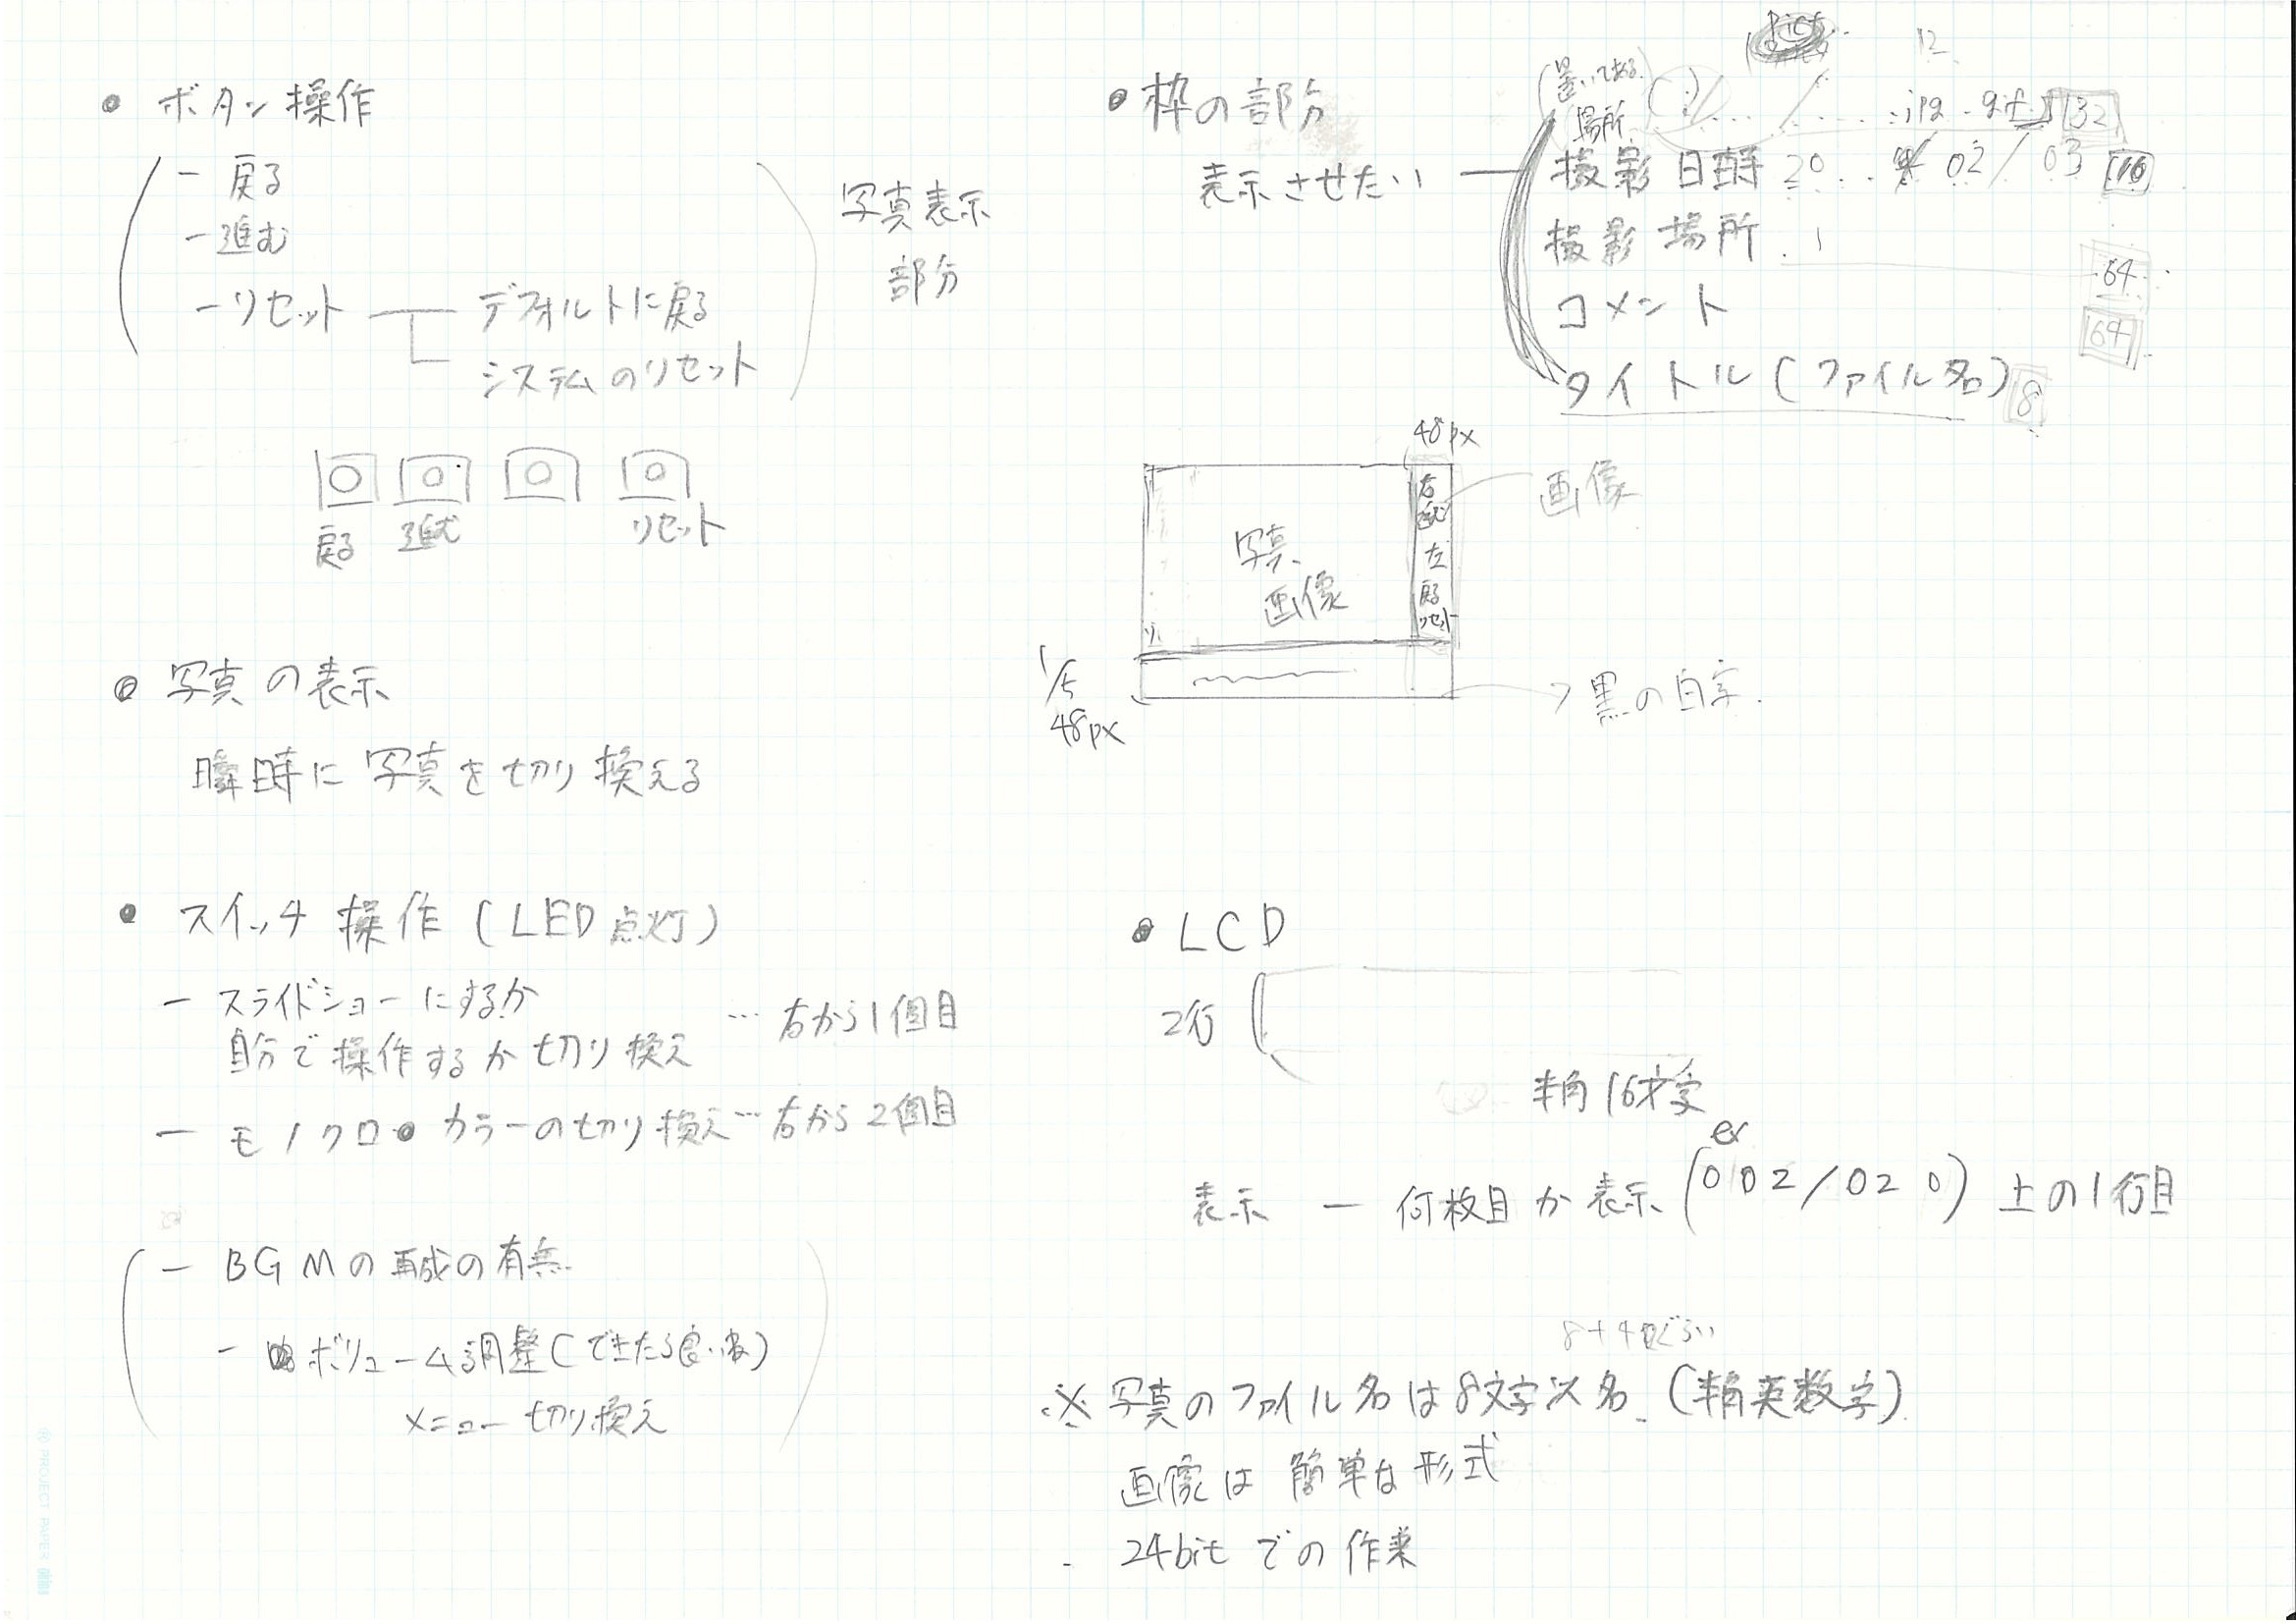 ● ボタン操作
- 戻る
- 進む
- リセット
デフォルトに戻る
システムのリセット
写真表示
部分
戻る 進む リセット
● 写真の表示
瞬時に写真を切り換える
● スイッチ操作(LED点灯)
- スライドショーにするか
自分で操作するか切り換え … 右から1個目
- モノクロ●カラーの切り換え … 右から2個目
- BGMの再成の有無
- ボリューム調整(できたら良いな)
メニュー切り換え
● 枠の部分
表示させたい
(置いてある
場所
.jpg .gif
32
12
撮影日時 20 .. 02/03 16
撮影場所
64
コメント
64
タイトル(ファイル名) 8
48px
画像
写真
画像
右
進む
左
戻る
リセット
1/5
48px
黒の白字.
● LCD
2行
半角16文字
ex
表示 — 何枚目か表示(002/020) 上の1行目
8+4ぐらい
※ 写真のファイル名は8文字以名.(半角英数字)
画像は簡単な形式
24bitでの作業
PROJECT PAPER